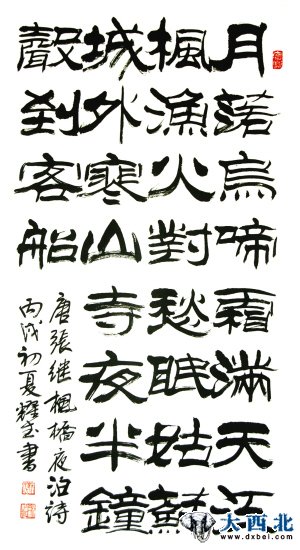 月落烏啼霜滿天江
楓漁火對愁眠姑蘇
城外寒山寺夜半鐘
聲到客船
唐張继楓橋夜泊詩
丙戌初夏書
大西北
www.dxbei.com